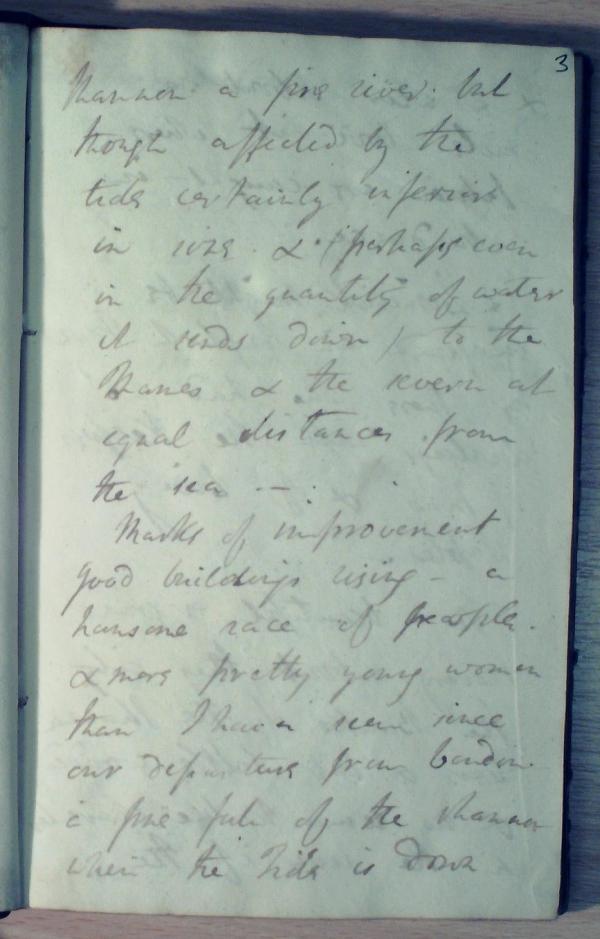 3
Shannon a fine river. but
though affected by the
tide certainly inferior
in size. & (perhaps even
in the quantity of water
it sends down) to the
Thames & the severn at
equal distances from
the sea —:
Marks of improvement
good buildings rising – a
hansome race of people.
& more pretty young women
than I have seen since
our departure from London.
a fine fall of the shannon
when the tide is down